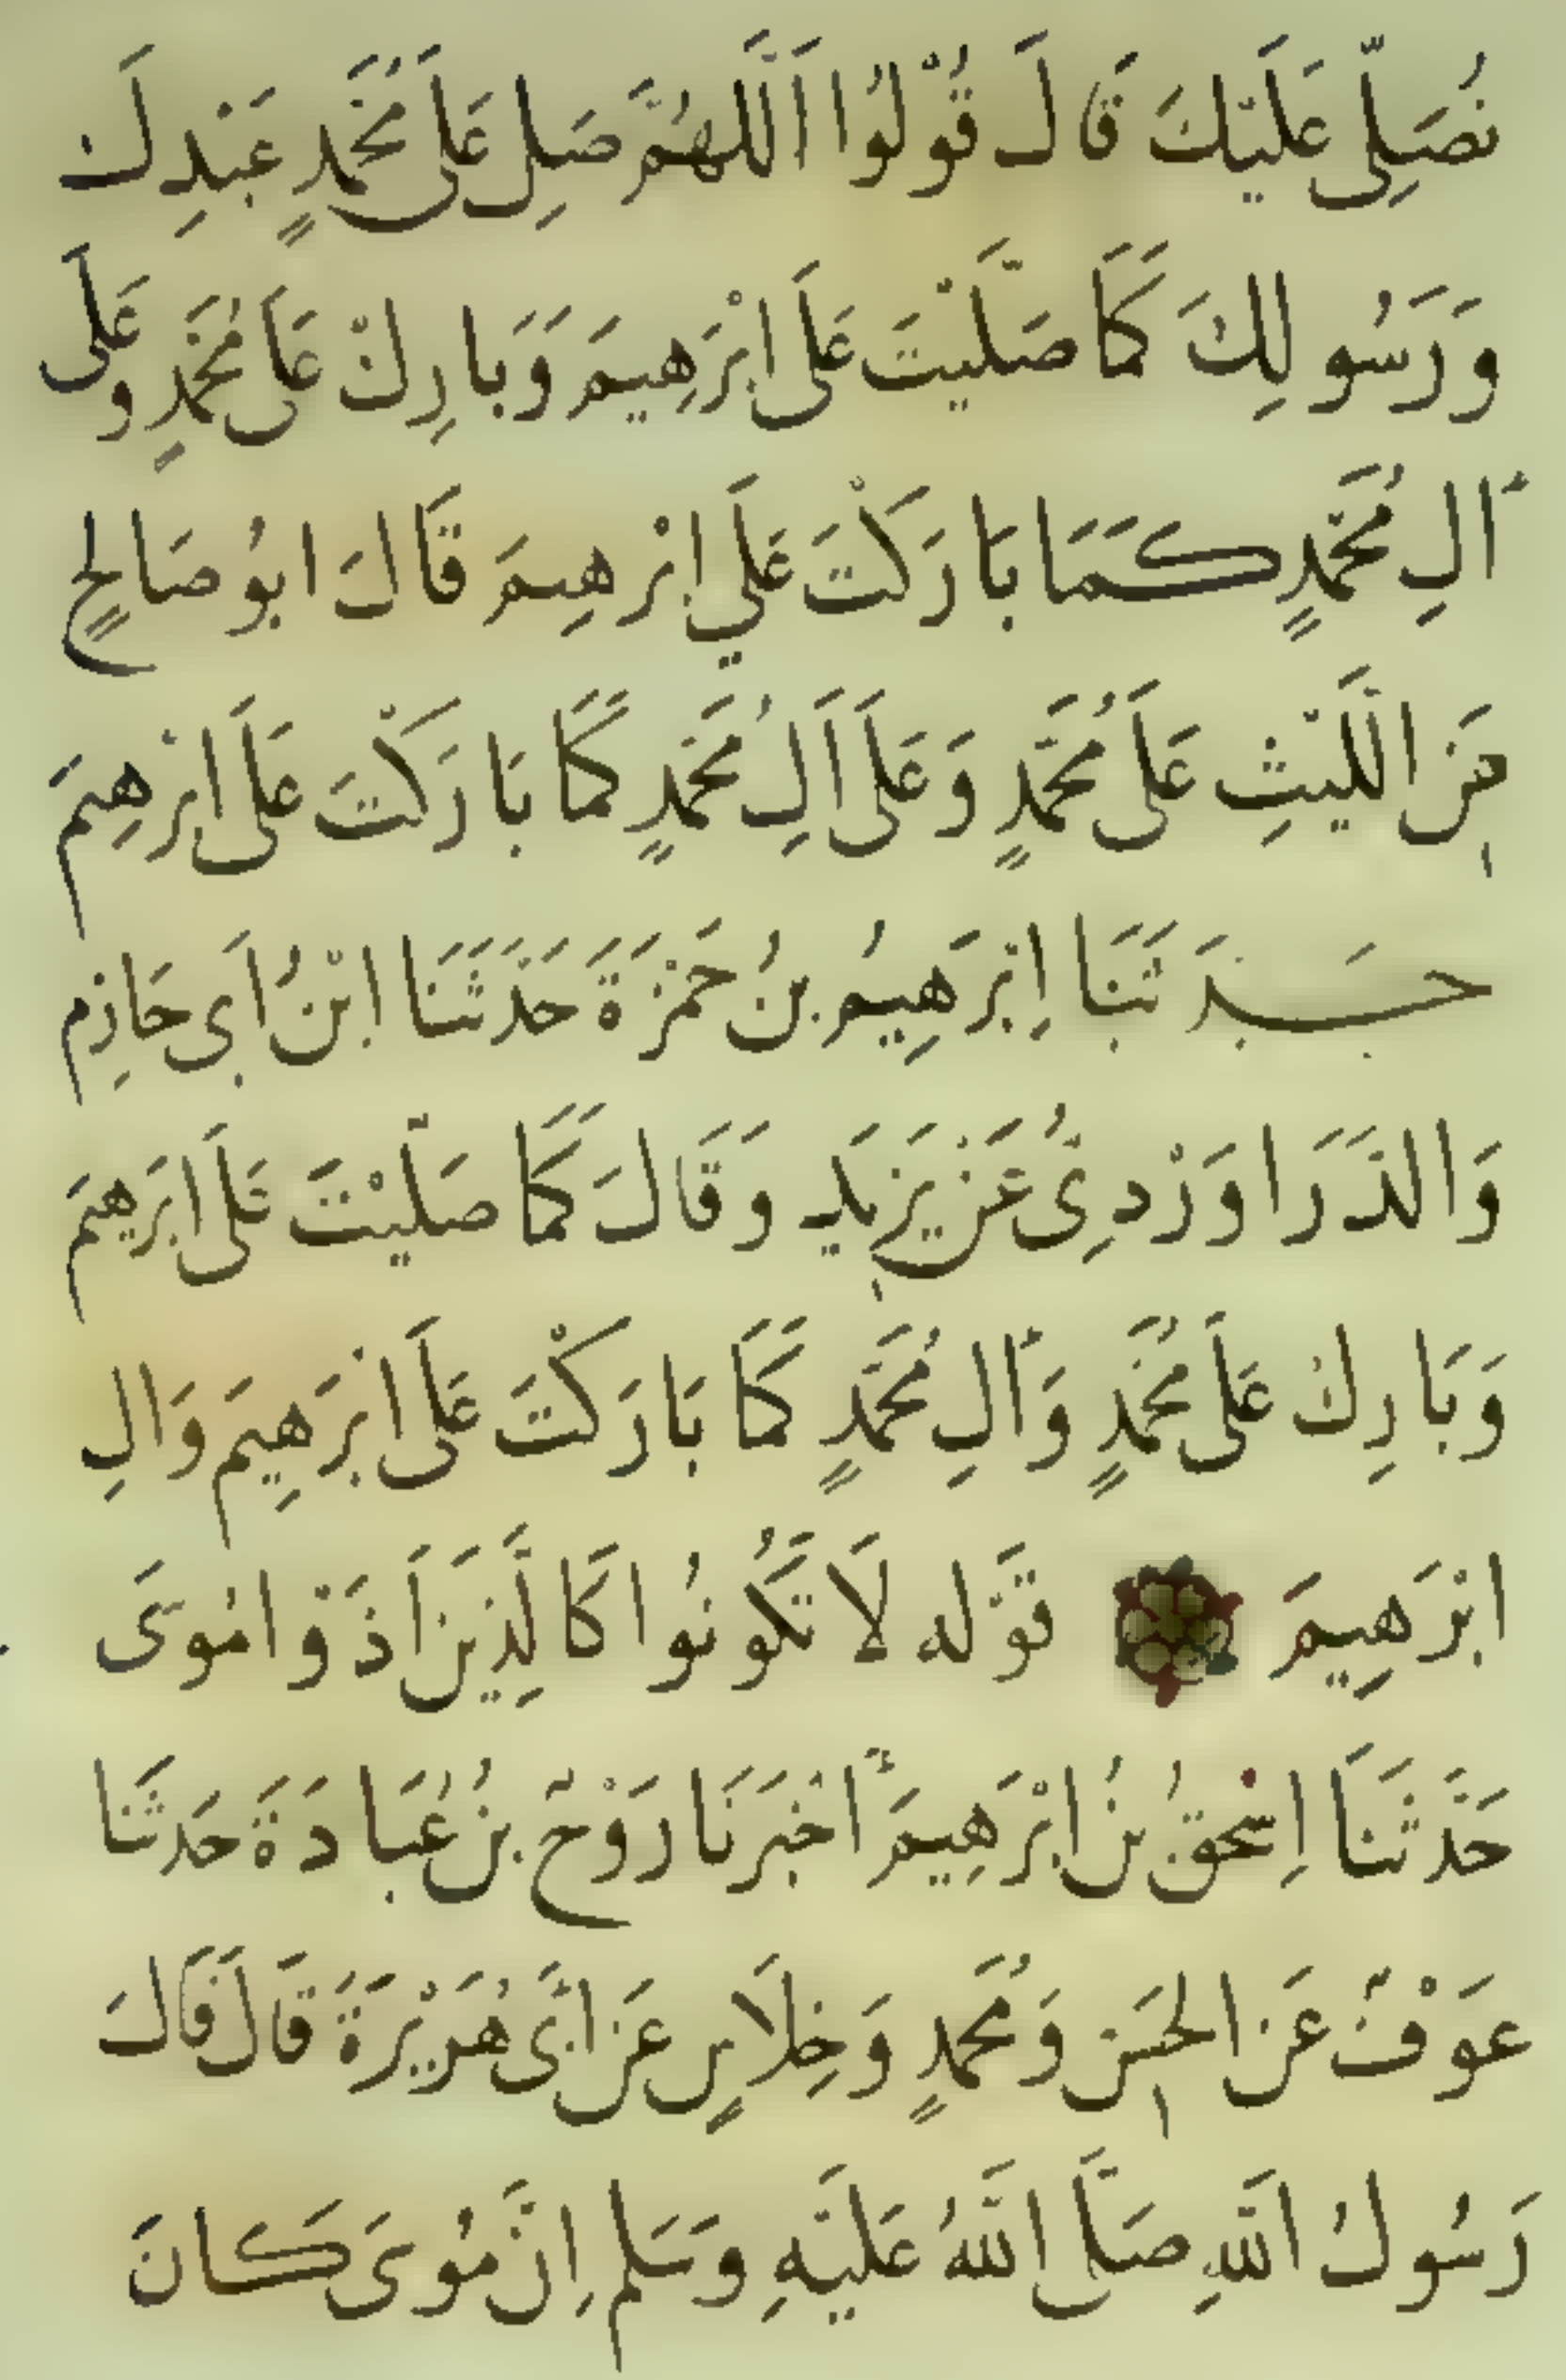 نُصَلِّي عَلَيْكَ قَالَ قُوْلُوْا اَللَّهُمَّ صَلِ عَلَى مُحَمَّدٍ عَبْدِكَ
وَرَسُولِكَ كَمَا صَلَّيْتَ عَلَى ابْرَهِيمَ وَبَارِكْ عَلَى مُحَمَّدٍ وعَلَى
اٰلِ مُحَمَّدٍ كَمَا بَارَكْتَ عَلَي ابْرهِيمَ قَالَ ابُو صَالِحٍ
عَنِ اللَّيْثِ عَلَى مُحَمَّدٍ وَعَلَى اَلِ مُحَمَّدٍ كَمَا بَارَكْتَ عَلَى ابْرهِيمَ
حَدَثَنَا اِبْرَهِيمُ بنُ حَمْزَةَ حَدَثَنَا ابْنُ اَبِى حَازِم
وَالدَّرَاوَرْدِىُّ عَنْ يَزِيدَ وَقَالَ كَمَا صَلَّيْتَ عَلَى ابْرَهِيمَ
وَبَارِكْ عَلَى مُحَمَّدٍ وَاٰلِ مُحَمَّدٍ كَمَا بَارَكْتَ عَلَى ابْرَهِيمَ وَالِ
ابْرَهِيمَ قَوْله لَا تَكُونُوا كَالَّذِينَ اَذَوْا مُوسَى
حَدَّثَنَا اِسْحقُ بنُ ابْرَهِيمَ اَخْبَرَنَا رَوْحٌ بنُ عُبَادَةَ حَدثَنَا
عَوْفٌ عَنِ الحَسَنِ وَمُحَمدٍ وَخِلَاسٍ عَنْ اَبِى هُرَيْرَةَ قَالَ قَالَ
رَسُولُ اللَّهِ صَلَّى اللَّهُ عَلَيْهِ وَسَلم اِنَّ مُوسَى كَانَ